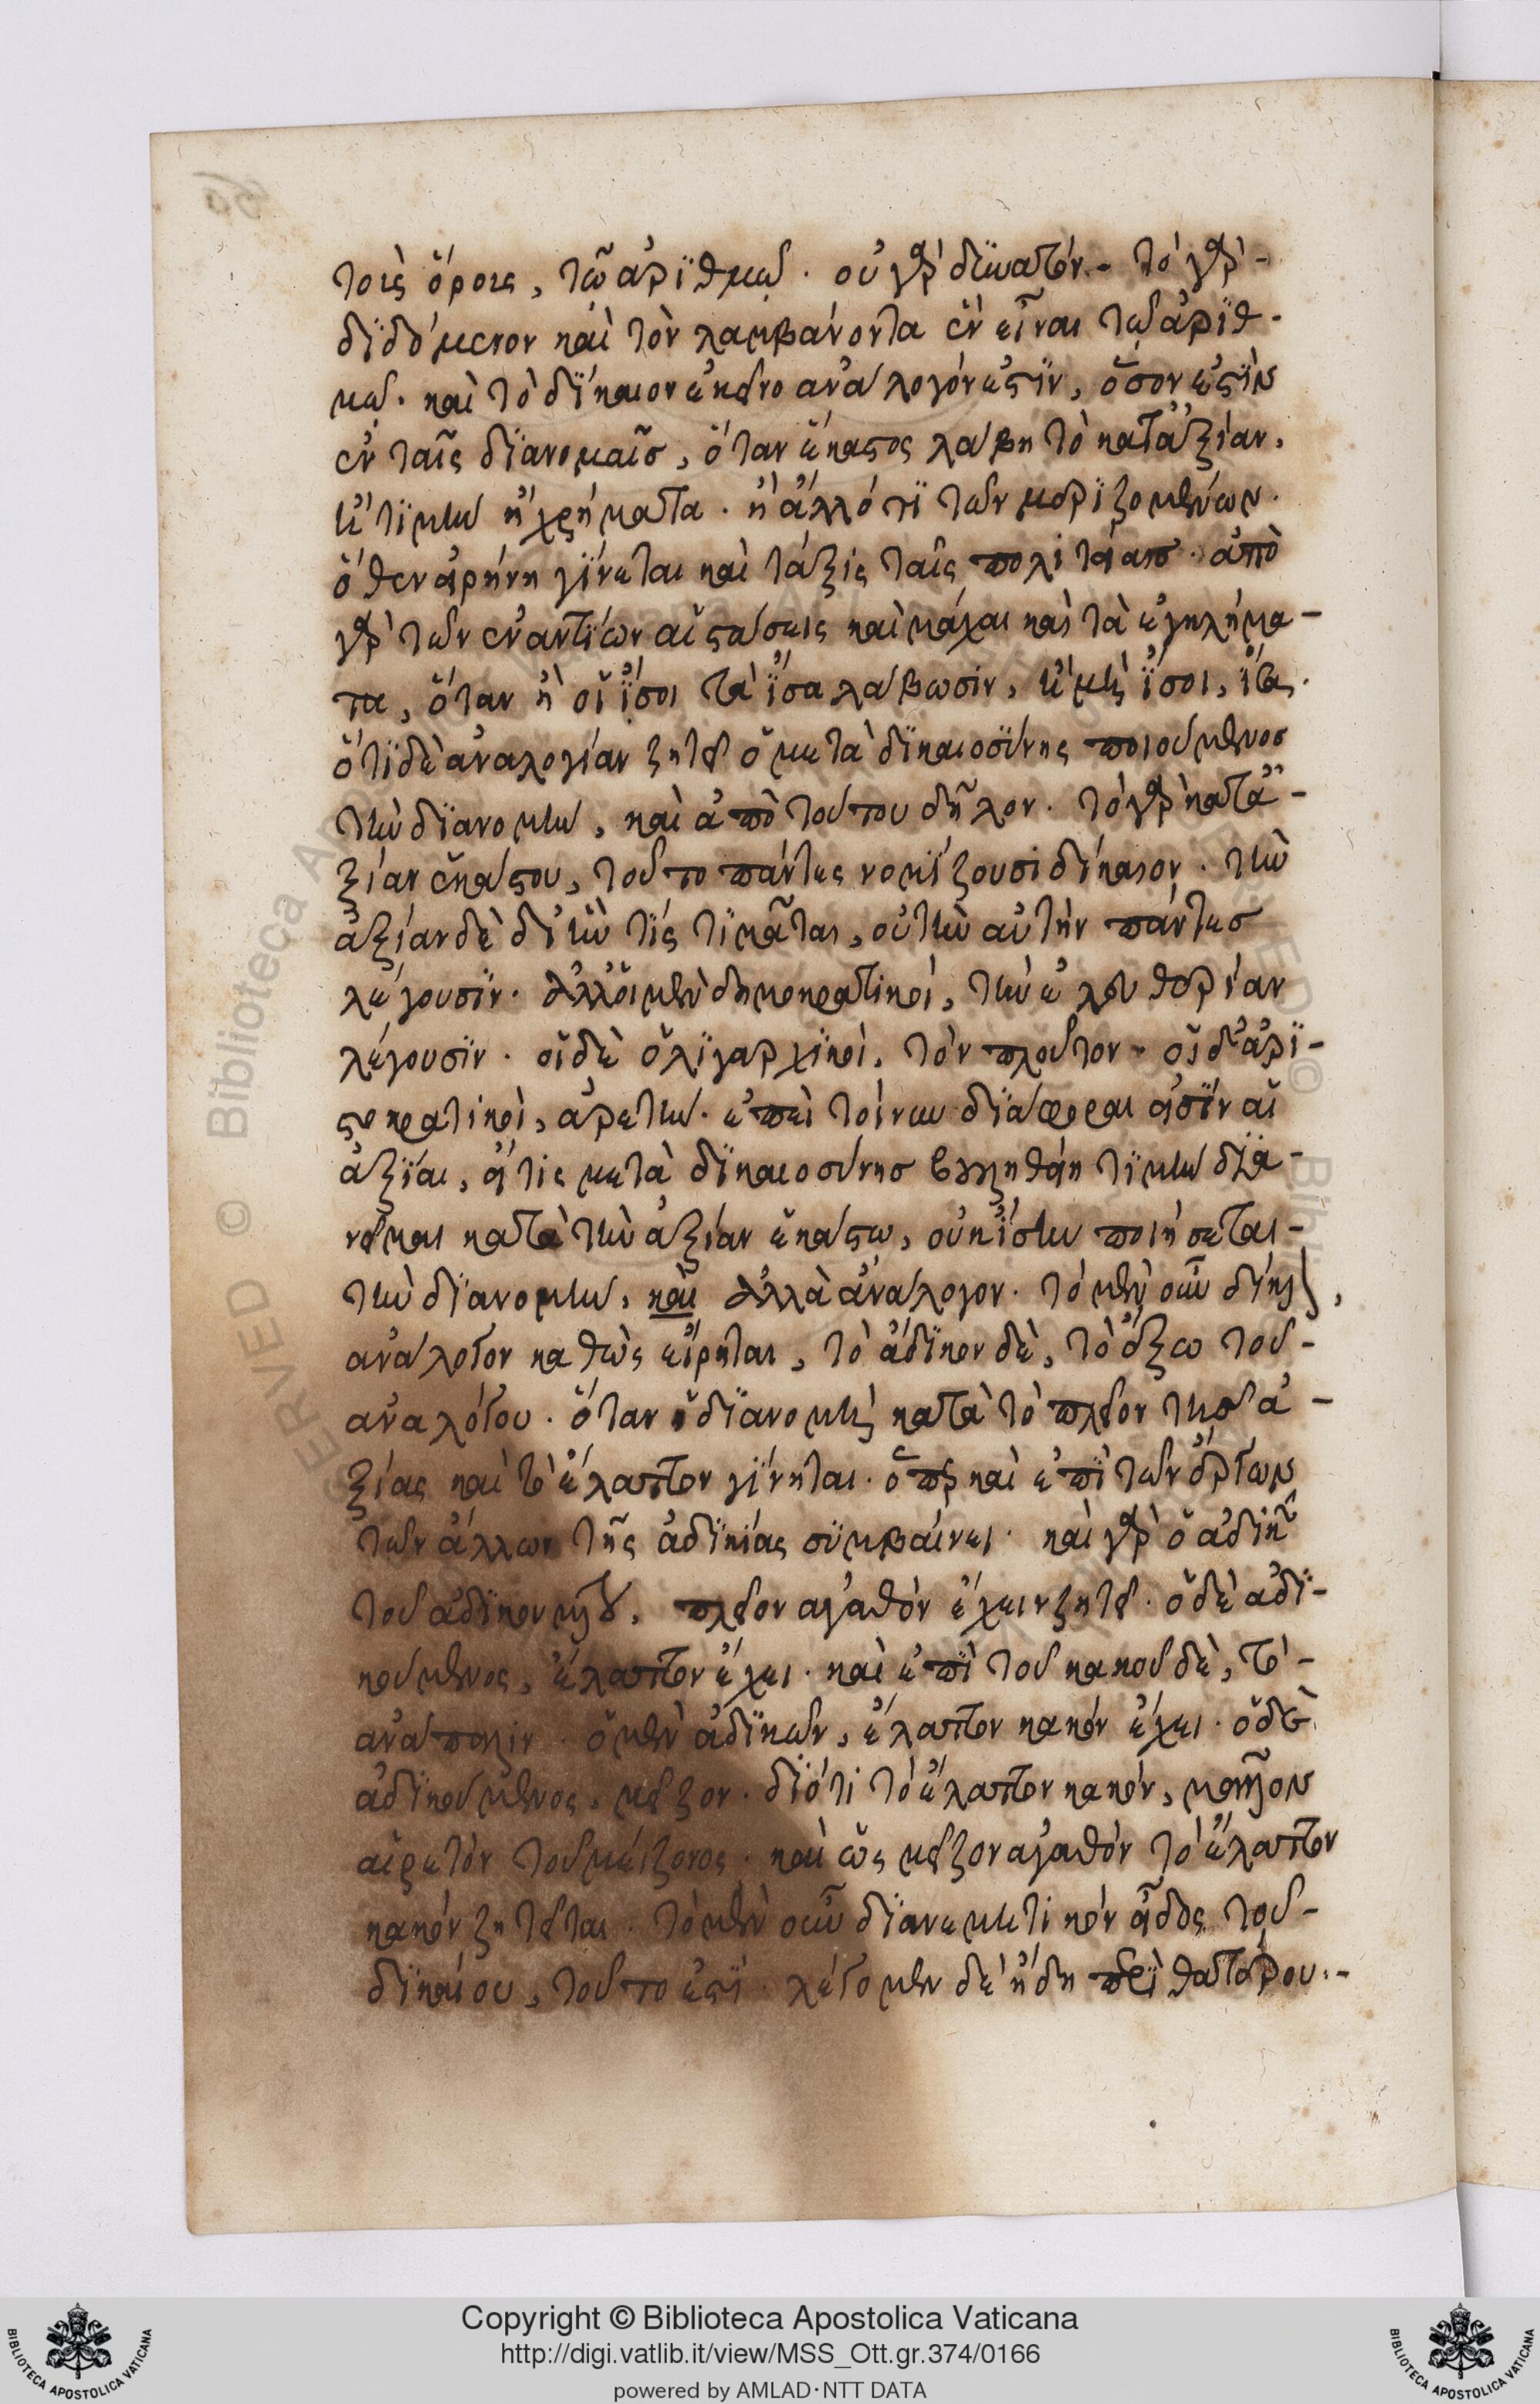 τοῖς ὅροις, τῷ ἀριθμῷ. οὐ γὰρ δυνατόν. τὸ γὰρ
διδόμενον καὶ τὸν λαμβάνοντα ἓν εἶναι τῷ ἀριθ-
μῷ. καὶ τὸ δίκαιον ἐκεῖνο ἀνάλογόν ἐστιν, ὅσον ἐστὶν
ἐν ταῖς διανομαῖς, ὅταν ἕκαστος λάβη τὸ κατ' ἀξίαν.
ἢ τιμὴν ἢ χρήματα. ἢ ἄλλό τι τῶν μεριζομένων.
ὅθεν εἰρήνη γίνεται καὶ τάξις ταῖς πολιτείαις. ἀπὸ
γὰρ τῶν ἐναντίων αἱ στάσεις καὶ μάχαι καὶ τὰ ἐγκλήμα-
τα, ὅταν ἢ οἱ ἴσοι τὰ ἴσα λάβωσιν, ἢ μὴ ἴσοι, ἴσα.
ὅτι δὲ ἀναλογίαν ζητεῖ ὁ μετὰ δικαιοσύνης ποιούμενος
τὴν διανομὴν, καὶ ἀπὸ τούτου δῆλον. τὸ γὰρ κατ' ἀ-
ξίαν ἑκάστου, τοῦτο πάντες νομίζουσι δίκαιον. τὴν
ἀξίαν δὲ δι' ἣν τίς τιμᾶται, οὐ τὴν αὐτὴν πάντες
λέγουσιν. ἀλλ' οἱ μὲν δημοκρατικοὶ, τὴν ἐλευθερίαν
λέγουσιν. οἱ δὲ ὀλιγαρχικοὶ, τὸν πλοῦτον. οἱ δ' ἀρι-
στοκρατικοὶ, ἀρετήν. ἐπεὶ τοίνυν διάφοραι εἰσὶν αἱ
ἀξίαι, εἴ τις μετὰ δικαιοσύνης βουληθείη τιμὴν δια-
νεῖμαι κατὰ τὴν ἀξίαν ἑκάστω, οὐκ ἴσην ποιήσεται
τὴν διανομὴν, καὶ ἀλλὰ ἀνάλογον. τὸ μὲν οὖν δίκαιον,
ἀνάλογον καθὼς εἴρηται, τὸ ἄδικον δὲ, τὸ ἔξω τοῦ
ἀναλόγου. ὅταν ἡ διανομὴ κατὰ τὸ πλεῖον τῆς ἀ-
ξίας καὶ τὸ ἔλαττον γίνηται. ὅπερ καὶ ἐπὶ τῶν ἔργων
τῶν ἄλλων τῆς ἀδικίας συμβαίνει. καὶ γὰρ ὁ ἀδικῶν
τοῦ ἀδικουμένου, πλεῖον ἀγαθὸν ἔχειν ζητεῖ. ὁ δὲ ἀδι-
κούμενος, ἔλαττον ἔχει. καὶ ἐπὶ τοῦ κακοῦ δὲ, τὸ
ἀνάπαλιν. ὁ μὲν ἀδικῶν, ἔλαττον κακὸν ἔχει. ὁ δὲ
ἀδικούμενος, μεῖζον. διότι τὸ ἔλαττον κακὸν, μᾶλλον
αἱρετὸν τοῦ μείζονος. καὶ ὡς μεῖζον ἀγαθὸν τὸ ἔλαττον
κακὸν ζητεῖται. τὸ μὲν οὖν διανεμητικὸν εἶδος τοῦ
δικαίου, τοῦτό ἐστι. λέγομεν δὲ ἤδη περὶ θατέρου.
Copyright © Biblioteca Apostolica Vaticana
http://digi.vatlib.it/view/MSS_Ott.gr.374/0166
powered by AMLAD·NTT DATA
BIBLIOTECA APOSTOLICA VATICANA
BIBLIOTECA APOSTOLICA VATICANA